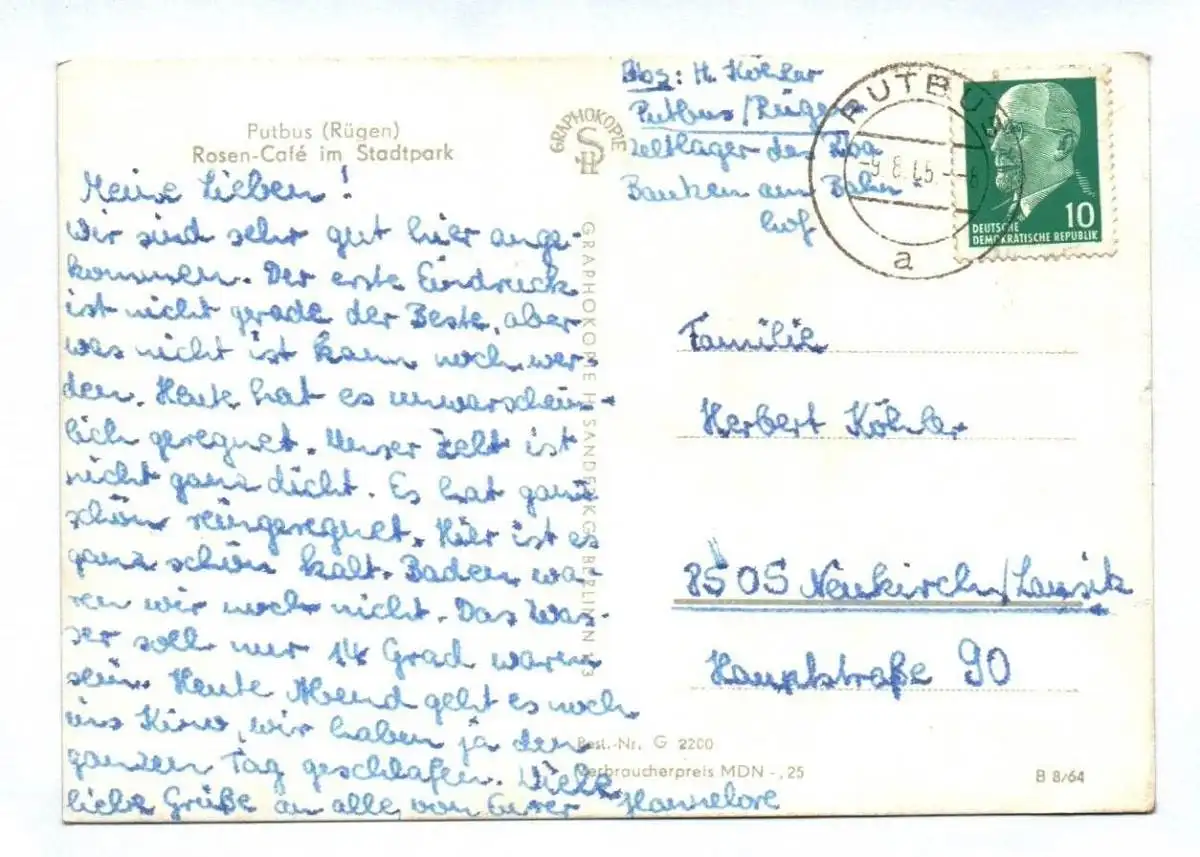 Putbus (Rügen)
Rosen-Café im Stadtpark
Meine Lieben!
Wir sind sehr gut hier ange-
kommen. Der erste Eindruck
ist nicht gerade der Beste, aber
was nicht ist kann noch wer-
den. Heute hat es unwarschein-
lich geregnet. Unser Zelt ist
nicht ganz dicht. Es hat ganz
schön reingeregnet. Hier ist es
ganz schön kalt. Baden wa-
ren wir noch nicht. Das Was-
ser soll nur 14 Grad warm
sein. Heute Abend geht es noch
ins Kino, wir haben ja den
ganzen Tag geschlafen. Viele
liebe Grüße an alle von Eurer Hannelore
GRAPHOKOPIE
SH
GRAPHOKOPIE H. SANDER KG. BERLIN N 113
Abs: H. Köhler
Putbus/Rügen
Zeltlager der
Bautzen am Bahn-
hof
PUTBUS
-9.8.65.--8
a
10
DEUTSCHE
DEMOKRATISCHE REPUBLIK
Familie
Herbert Köhler
8505 Neukirch/Lausitz
Hauptstraße 90
Best.-Nr. G 2200
Verbraucherpreis MDN -,25
B 8/64